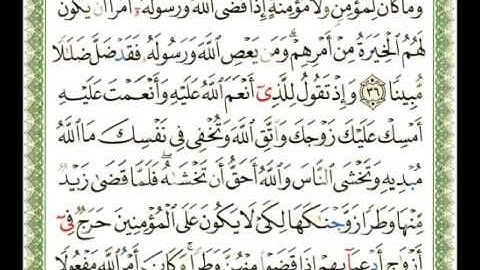 وَمَا كَانَ لِمُؤْمِنٍ وَلَا مُؤْمِنَةٍ إِذَا قَضَى ٱللَّهُ وَرَسُولُهُۥٓ أَمْرًا أَن يَكُونَ
لَهُمُ ٱلْخِيَرَةُ مِنْ أَمْرِهِمْ ۗ وَمَن يَعْصِ ٱللَّهَ وَرَسُولَهُۥ فَقَدْ ضَلَّ ضَلَٰلًا
مُّبِينًا ﴿٣٦﴾ وَإِذْ تَقُولُ لِلَّذِىٓ أَنْعَمَ ٱللَّهُ عَلَيْهِ وَأَنْعَمْتَ عَلَيْهِ
أَمْسِكْ عَلَيْكَ زَوْجَكَ وَٱتَّقِ ٱللَّهَ وَتُخْفِى فِى نَفْسِكَ مَا ٱللَّهُ
مُبْدِيهِ وَتَخْشَى ٱلنَّاسَ وَٱللَّهُ أَحَقُّ أَن تَخْشَىٰهُ ۖ فَلَمَّا قَضَىٰ زَيْدٌ
مِّنْهَا وَطَرًا زَوَّجْنَٰكَهَا لِكَىْ لَا يَكُونَ عَلَى ٱلْمُؤْمِنِينَ حَرَجٌ فِىٓ
أَزْوَٰجِ أَدْعِيَآئِهِمْ إِذَا قَضَوْا۟ مِنْهُنَّ وَطَرًا ۚ وَكَانَ أَمْرُ ٱللَّهِ مَفْعُولًا